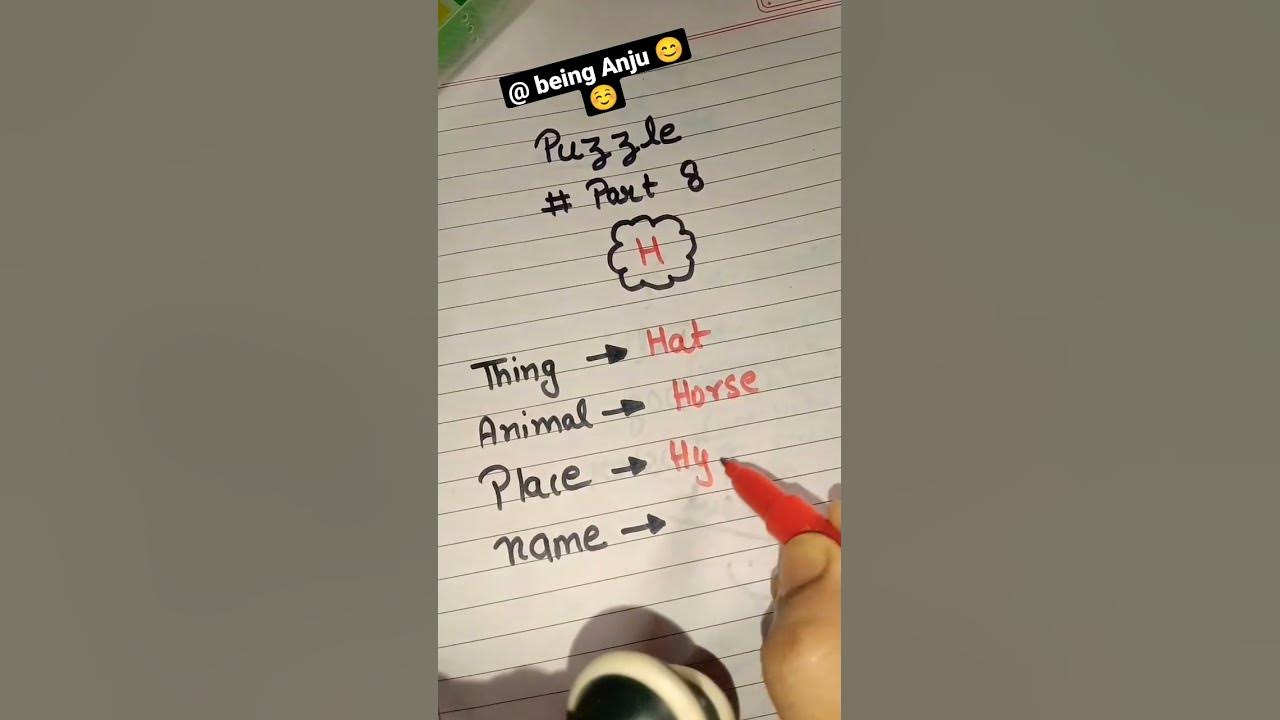 @ being Anju 😊
☺️
Puzzle
# Part 8
H
Thing → Hat
Animal → Horse
Place → Hy
name →